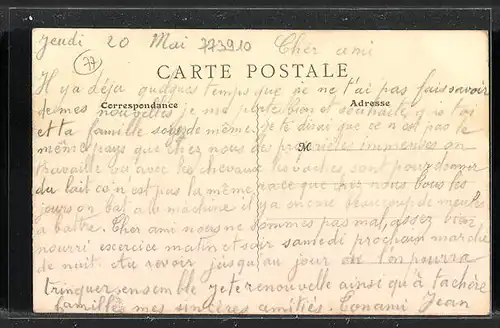 Jeudi 20 Mai 773910 Cher ami
77
CARTE POSTALE
Correspondance Adresse
M
Il ya déja quelques temps que je ne t'ai pas fais savoir
de mes nouvelles je me porte bien et souhaite q
et ta famille de même. Je te dirai que ce n est pas le
même pays que chez nous des propriétés immenses on
travaille avec les chevaux les vaches sont pour donner
du lait ce n'est pas la même race que chez nous tous les
jours on bat a la machine il y a encore beaucoup de meules
a battre. Cher ami nous ne sommes pas mal, assez bien
nourri exercice matin et soir samedi prochain marche
de nuit. Au revoir jusqu'au jour ou l'on pourra
trinquer ensemble je te renouvelle ainsi qu'à ta chère
famille mes sincères amitiés. Tonami Jean